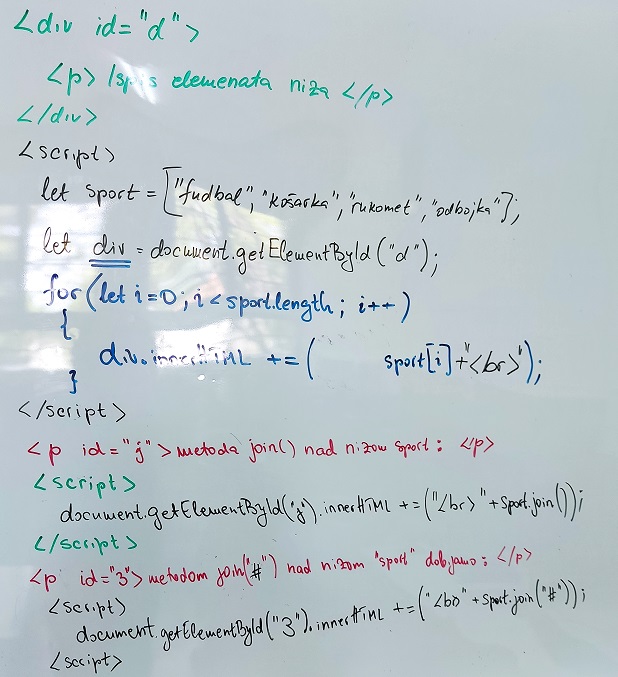 <div id="d">
<p> Ispis elemenata niza </p>
</div>
<script>
let sport = ["fudbal", "košarka", "rukomet", "odbojka"];
let div = document.getElementById("d");
for(let i=0; i<sport.length; i++)
{
div.innerHTML += ( sport[i]+"<br>");
}
</script>
<p id="j">metoda join() nad nizom sport: </p>
<script>
document.getElementById('j').innerHTML += ("<br>"+sport.join());
</script>
<p id="3">metodom join("#") nad nizom "sport" dobijamo: </p>
<script>
document.getElementById("3").innerHTML += ("<br>"+sport.join("#"));
<script>